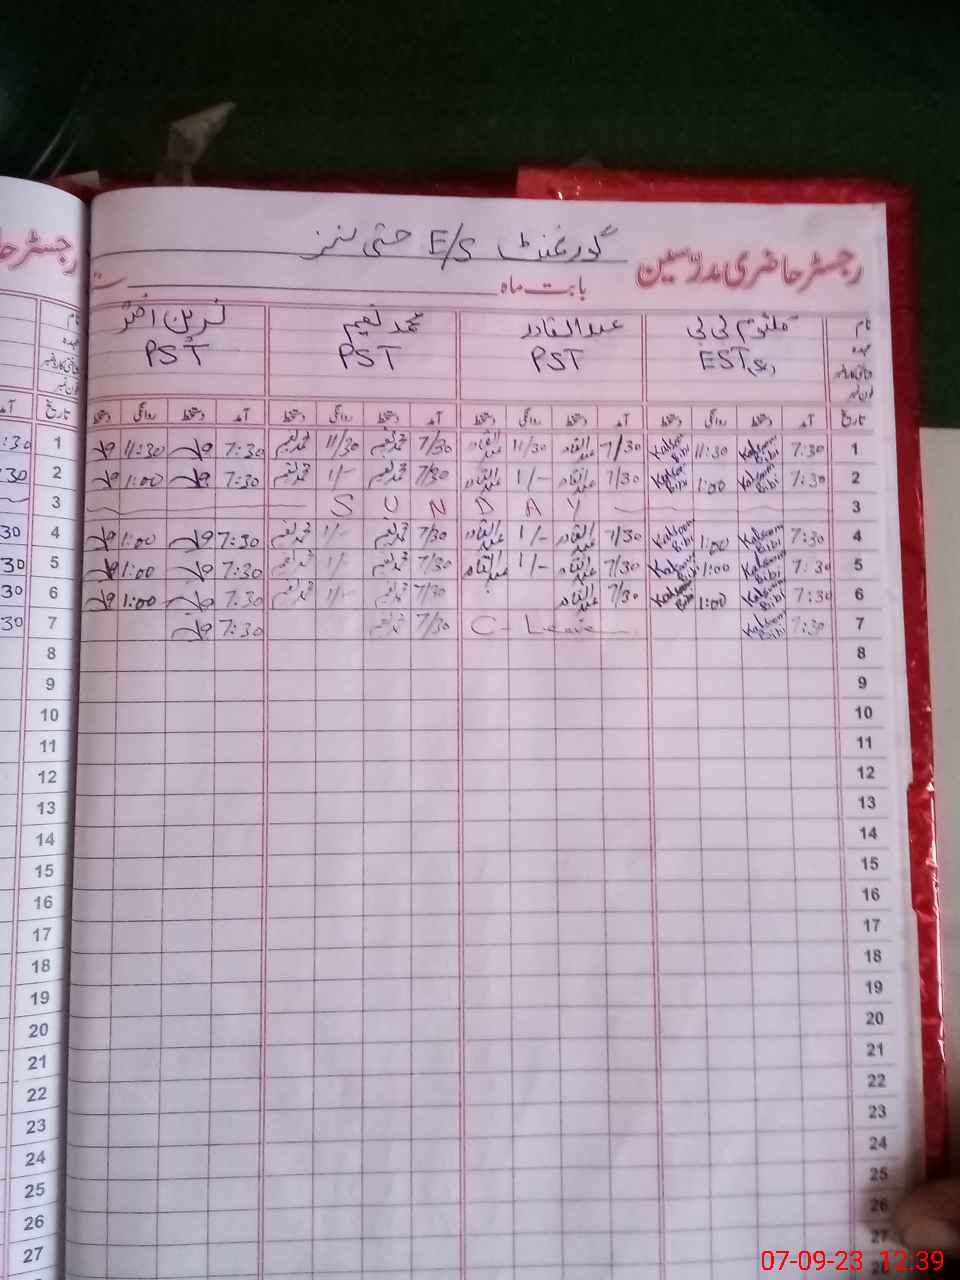 گورنمنٹ E/S
رجسٹر حاضری مدرسین
بابت ماہ
نام کلثوم بی بی عبدالقادر محمد نعیم نسرین اختر
عہدہ EST PST PST PST
تاریخ آمد دستخط روانگی دستخط آمد دستخط روانگی دستخط آمد دستخط روانگی دستخط آمد دستخط روانگی دستخط
1 7:30 Kalsoom Bibi 11:30 Kalsoom Bibi 7/30 عبدالقادر 11/30 عبدالقادر 7/30 محمد نعیم 11/30 محمد نعیم 7:30 11:30 1
2 7:30 Kalsoom Bibi 1:00 Kalsoom Bibi 7/30 عبدالقادر 1/- عبدالقادر 7/30 محمد نعیم 1/- محمد نعیم 7:30 1:00 2
3 SUNDAY 3
4 7:30 Kalsoom Bibi 1:00 Kalsoom Bibi 7/30 عبدالقادر 1/- عبدالقادر 7/30 محمد نعیم 1/- محمد نعیم 7:30 1:00 4
5 7:30 Kalsoom Bibi 1:00 Kalsoom Bibi 7/30 عبدالقادر 1/- عبدالقادر 7/30 محمد نعیم 1/- محمد نعیم 7:30 1:00 5
6 7:30 Kalsoom Bibi 1:00 Kalsoom Bibi 7/30 عبدالقادر 7/30 محمد نعیم 1/- محمد نعیم 7:30 1:00 6
7 7:30 Kalsoom Bibi C-Leave 7/30 محمد نعیم 7:30 7
8 8
9 9
10 10
11 11
12 12
13 13
14 14
15 15
16 16
17 17
18 18
19 19
20 20
21 21
22 22
23 23
24 24
25 25
26 26
27 27
07-09-23 12:39